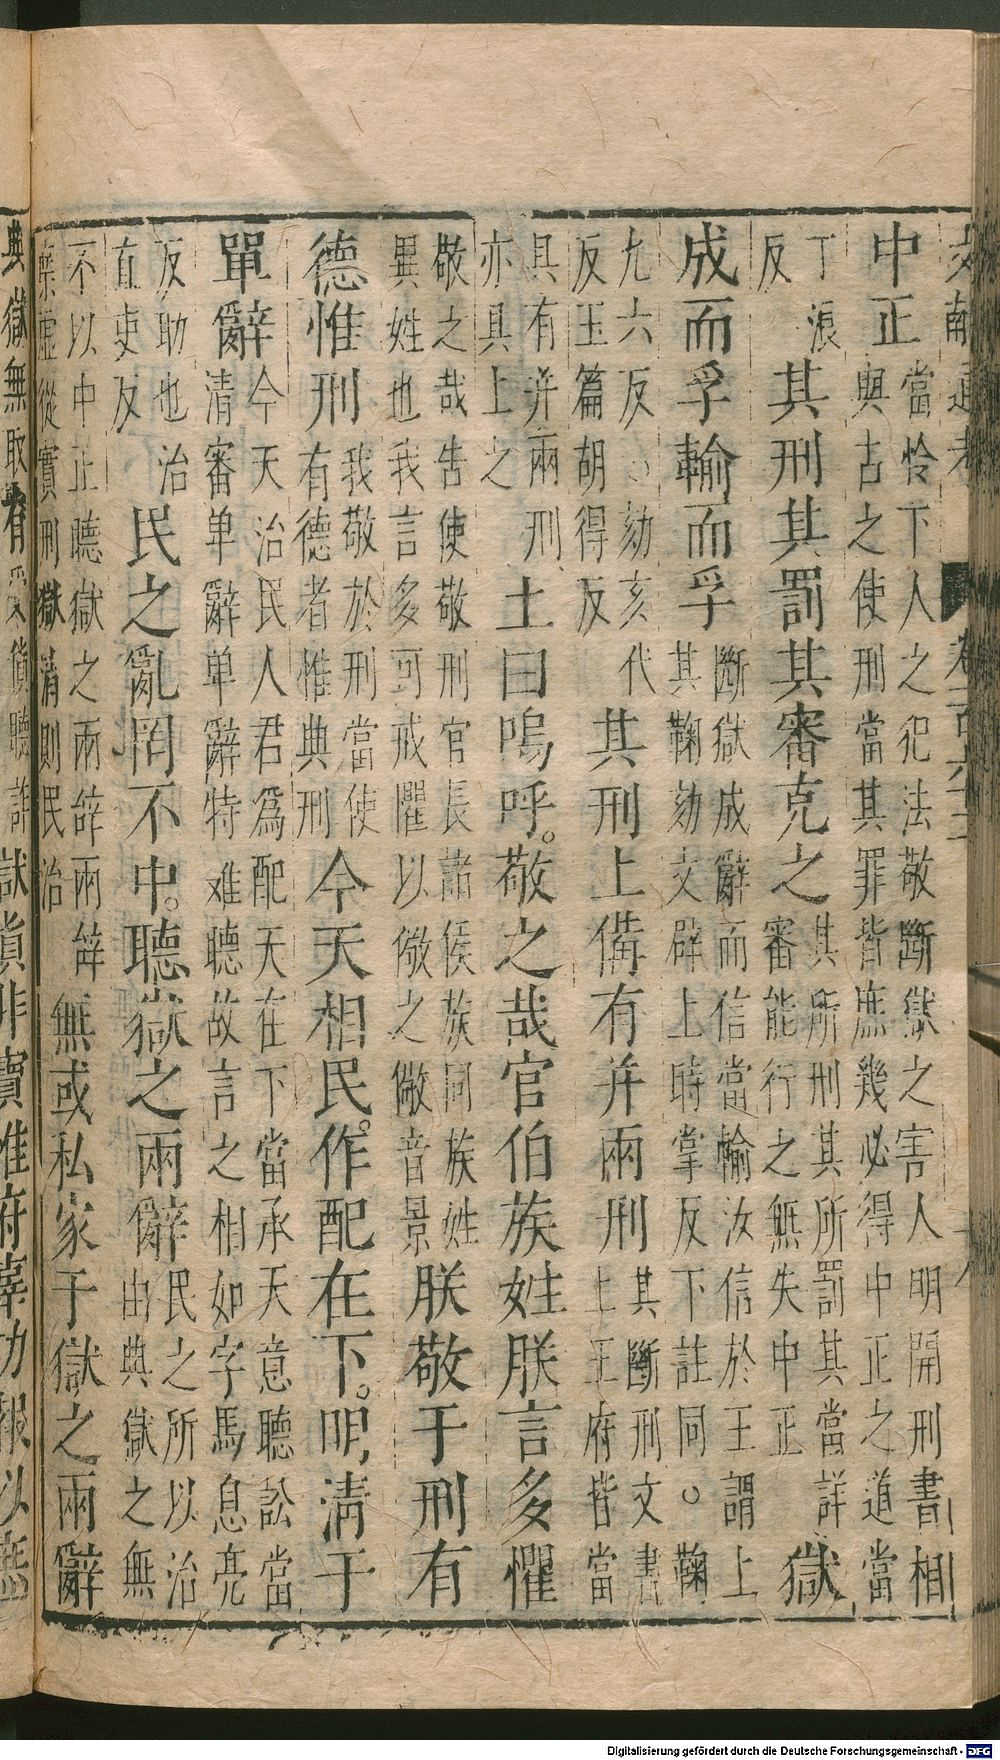 中正當怜下人之犯法敬斷獄之害人明開刑書相
與古之使刑當其罪皆庶幾必得中正之道當
丁浪
反其刑其罰其審克之其所刑其所罰其當詳
審能行之無失中正獄
成而孚輸而孚斷獄成辭而信當輸汝信於王謂上
其鞫劾文辟上時掌反下註同。鞫
九六反、劾亥代
反玉篇胡得反其刑上備有并兩刑其斷刑文書
上王府皆當
具有并兩刑
亦具上之王曰嗚呼。敬之哉官伯族姓朕言多懼
敬之哉告使敬刑官長諸侯族同族姓
異姓也我言多可戒懼以儆之儆音景朕敬于刑有
德惟刑我敬於刑當使
有德者惟典刑今天相民。作配在下。明清于
單辭今天治民人君為配天在下當承天意聽訟當
清審单辭单辭特难聽故言之相如字馬息亮
反助也治
直吏反民之亂罔不中。聽獄之兩辭民之所以治
由典獄之無
不以中正聽獄之兩辞兩辞
棄虛從實刑獄清則民治無或私家于獄之兩辭
典獄無敢有受貨聽詐獄貨非寶惟府辜功報以庶
Digitalisierung gefördert durch die Deutsche Forschungsgemeinschaft - DFG